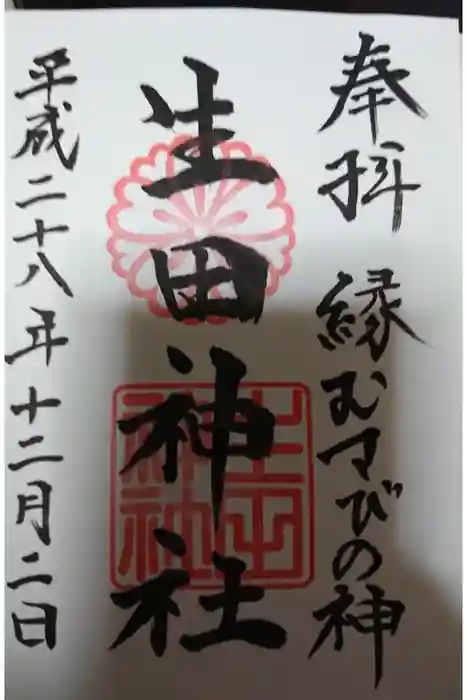 奉拝 縁むすびの神
生田神社
生田神社
平成二十八年十二月二日